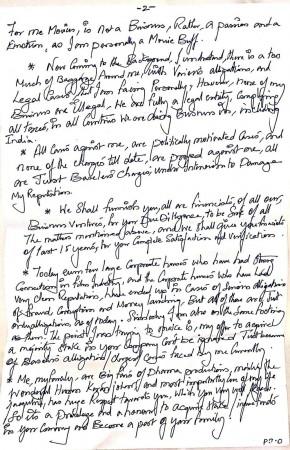 -2-
For me Movies, is Not a Business, Rather, a passion and a
Emotion, as I am personally a Movie Buff.
* Now Coming to the Background, I understand, there is a too
Much of Baggage Around me, with Various allegations, and
Legal Cases, that I am facing Personally, However, None of my
Business are Illegal, We are fully a legal entity, Complying
all Taxes, in all Countries We are doing Business in, including
India.
* All Cases against me, are politically motivated Cases, and
None of the charges till date, are proved against me, all
are Just Baseless Charges, under Intension to Damage
My Reputation.
* We Shall furnish you, all are financials, of all our
Business Ventures, for your Due Diligence, to be Sure of all
The matters mentioned above, and We Shall give you financials
of Past 15 years, for your Complete Satisfaction and Verification.
* Today even few large Corporate houses who have had Strong
in film Industry, and the Corporate houses who have had
Very clean Reputation, have ended up in Cases of Serious allegations
of Fraud, Corruption and Money laundering, But all of them are Just
allegations, as of today, Similarly I am also on the Same footing
as them. The point I am trying to make is, my offer to acquire
a majority Stake in your Company Cant be ignored Just because
of Baseless allegations / charges / Cases faced by me Currently.
* Me, my family, are Big fans of Dharma productions, movies, the
Wonderful and most importantly one of my
Jacqueline, has huge Respect towards you, which you very well
So its a Privilege and a honour to acquire Stake / invest funds
in your Company and Become a part of your family!
P.T.O